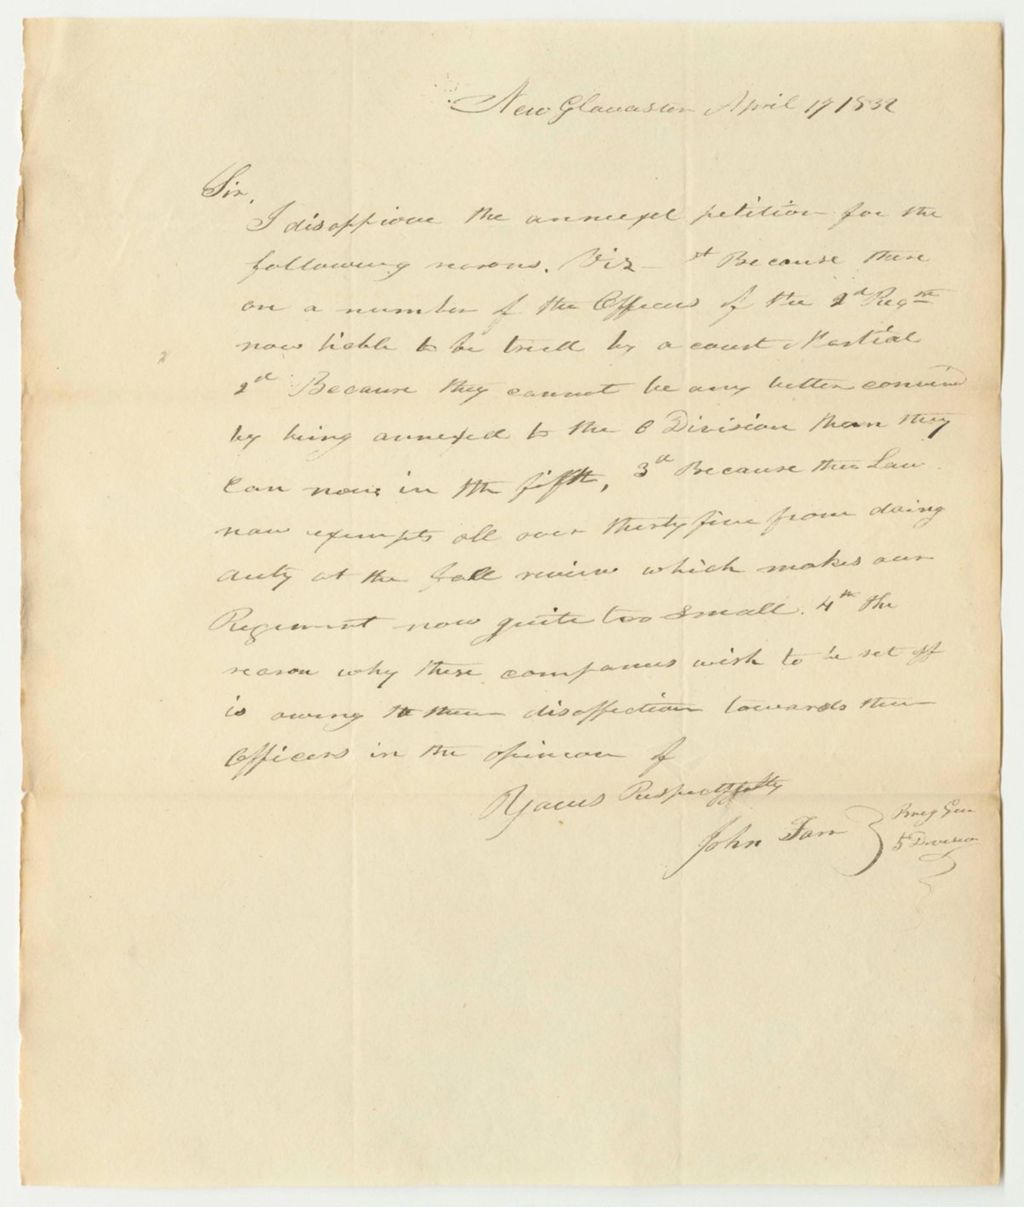 New Gloucester April 17 1832
Sir,
I disapprove the annexed petition for the
following reasons. Viz — 1st Because there
are a number of the Officers of the 2d Regmt
now liable to be tried by a court Martial
2d Because they cannot be any better convened
by being annexed to the 6 Division than they
can now in the fifth, 3d Because the Law
now exempts all over thirty five from doing
duty at the fall review which makes our
Regiment now quite too small. 4th the
reason why these companies wish to be set off
is owing to their disaffection towards their
Officers in the opinion of
Yours Respectfully
John Farr } Brig Gen
5 Division